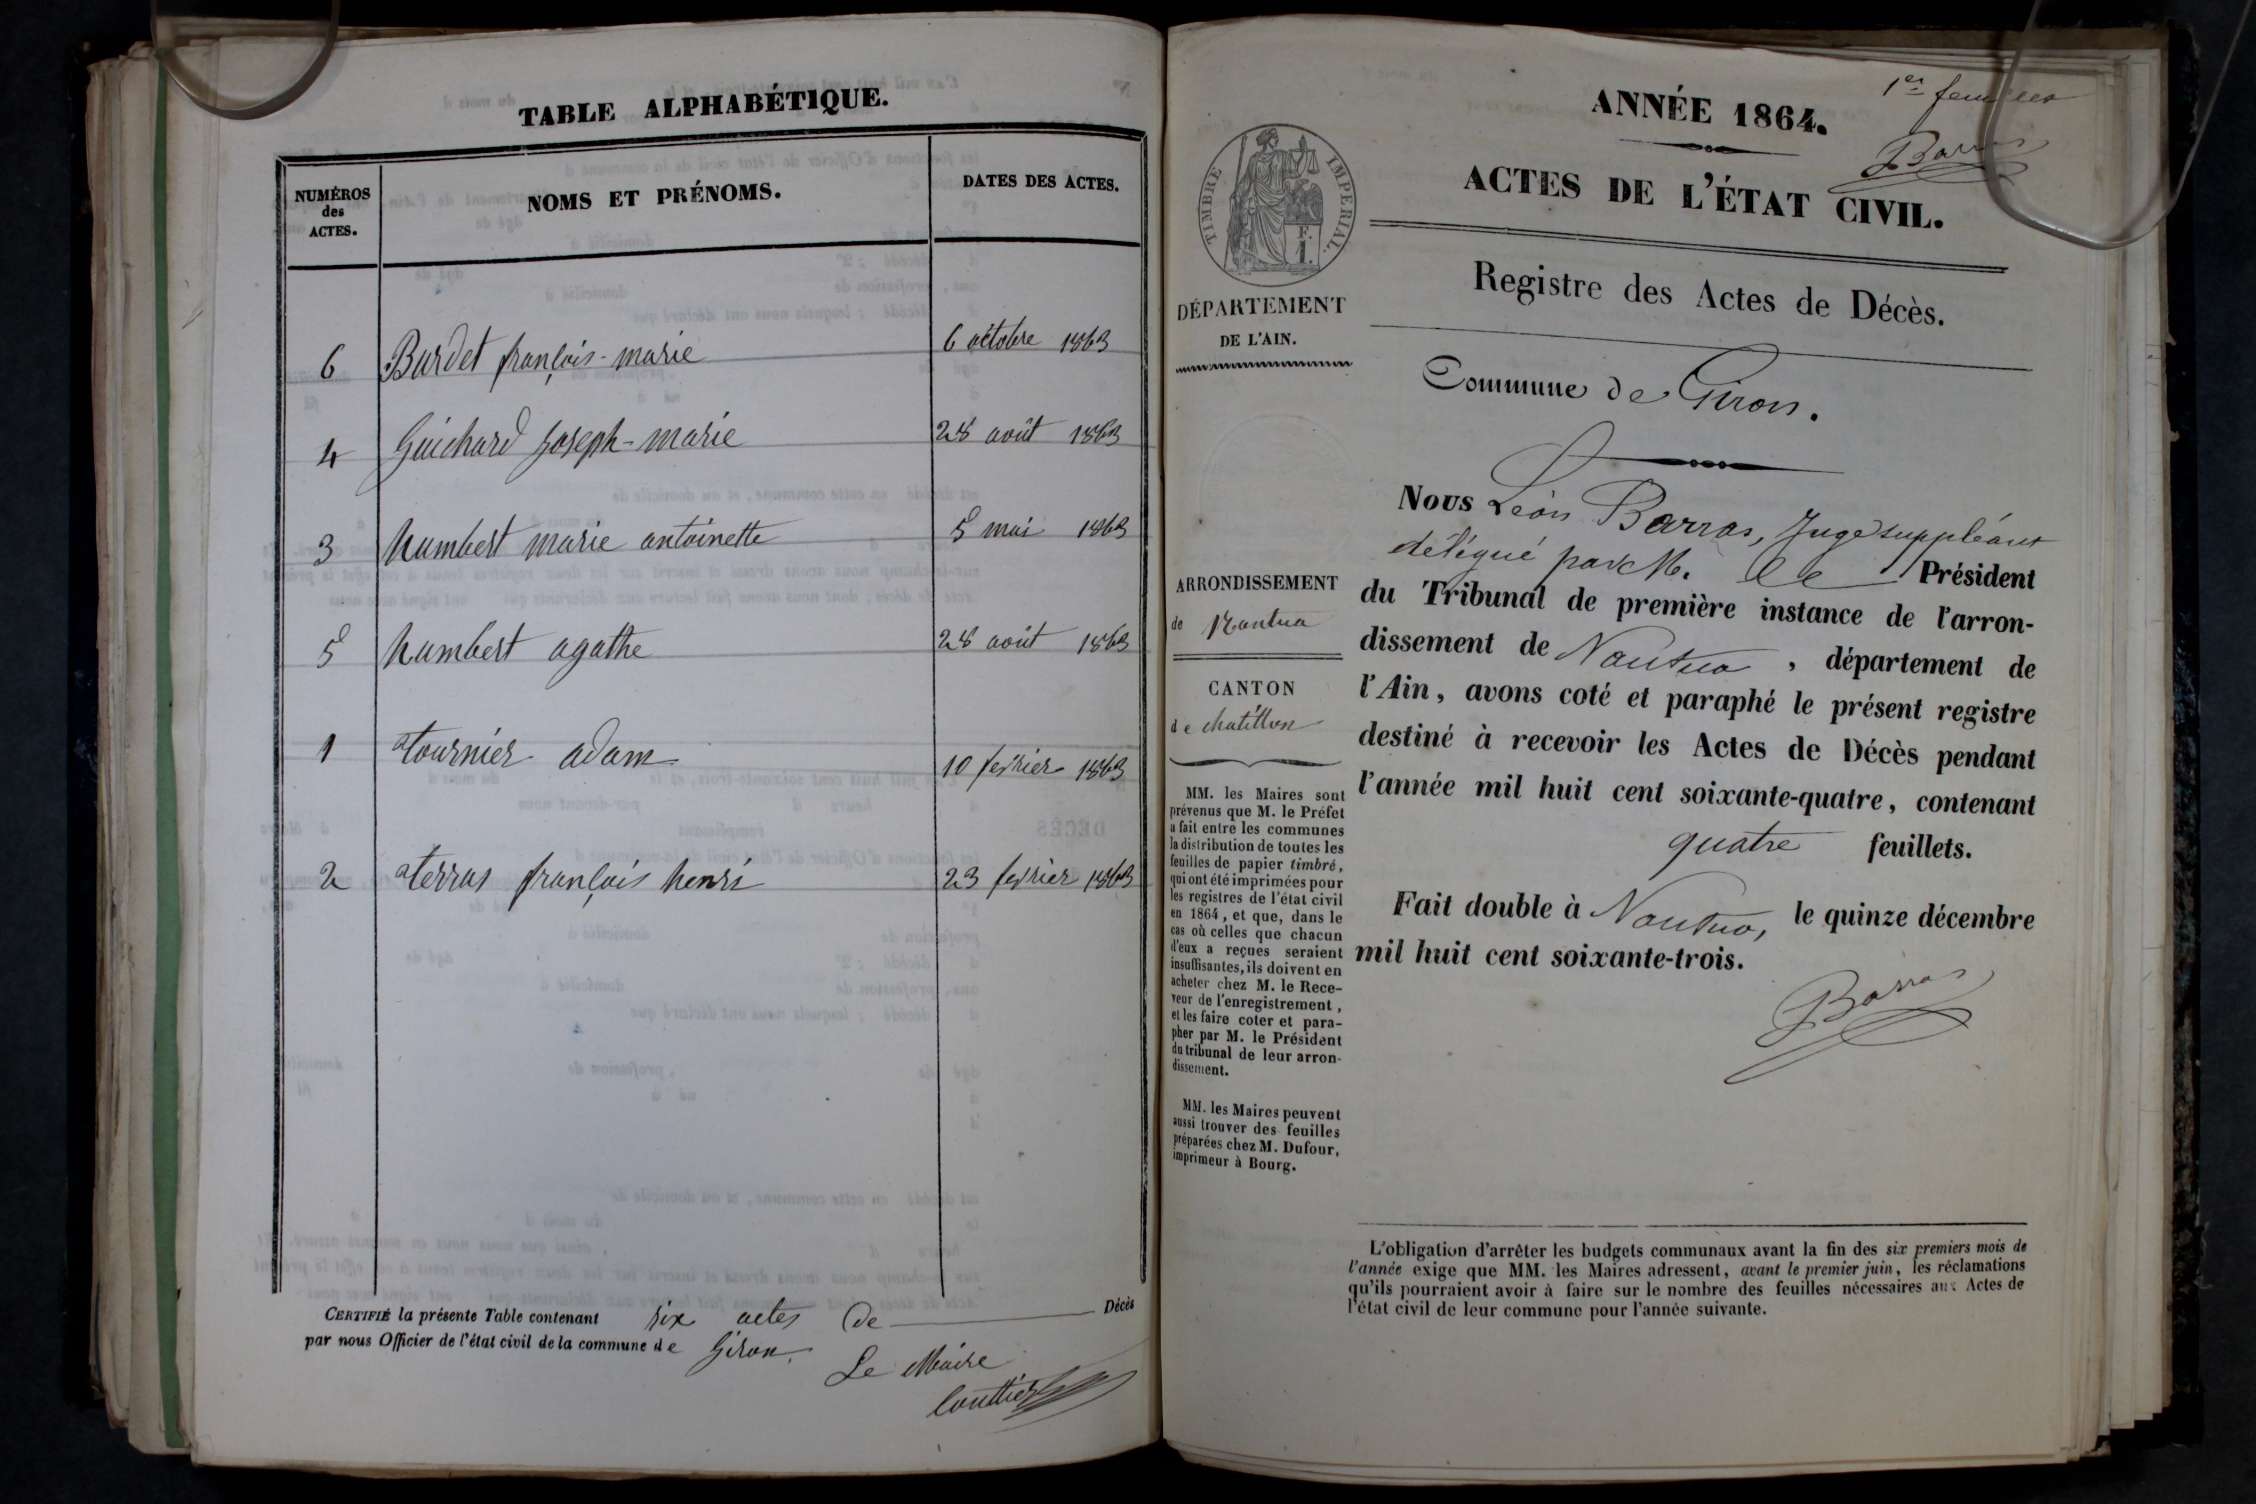 TABLE ALPHABÉTIQUE.
NUMÉROS des ACTES.
NOMS ET PRÉNOMS.
DATES DES ACTES.
6 Burdet françois-marie 6 octobre 1863
4 Guichard joseph-marie 28 août 1863
3 humbert marie antoinette 5 mai 1863
5 humbert agathe 28 août 1863
1 tournier adam 10 fevrier 1863
2 terras françois henri 23 fevrier 1863
CERTIFIÉ la présente Table contenant six actes de Décès
par nous Officier de l'état civil de la commune de Giron.
Le Maire
1er feuillet
Barras
ANNÉE 1864.
ACTES DE L'ÉTAT CIVIL.
TIMBRE IMPERIAL.
F.
1.
DÉPARTEMENT
DE L'AIN.
Registre des Actes de Décès.
Commune de Giron.
ARRONDISSEMENT
de Nantua
CANTON
de chatillon
MM. les Maires sont
prévenus que M. le Préfet
a fait entre les communes
la distribution de toutes les
feuilles de papier timbré,
qui ont été imprimées pour
les registres de l'état civil
en 1864, et que, dans le
cas où celles que chacun
d'eux a reçues seraient
insuffisantes, ils doivent en
acheter chez M. le Rece-
veur de l'enregistrement,
et les faire coter et para-
pher par M. le Président
du tribunal de leur arron-
dissement.
MM. les Maires peuvent
aussi trouver des feuilles
préparées chez M. Dufour,
imprimeur à Bourg.
Nous Léon Barras, Juge suppléant
délégué par M. le Président
du Tribunal de première instance de l'arron-
dissement de Nantua, département de
l'Ain, avons coté et paraphé le présent registre
destiné à recevoir les Actes de Décès pendant
l'année mil huit cent soixante-quatre, contenant
quatre feuillets.
Fait double à Nantua, le quinze décembre
mil huit cent soixante-trois.
Barras
L'obligation d'arrêter les budgets communaux avant la fin des six premiers mois de
l'année exige que MM. les Maires adressent, avant le premier juin, les réclamations
qu'ils pourraient avoir à faire sur le nombre des feuilles nécessaires aux Actes de
l'état civil de leur commune pour l'année suivante.